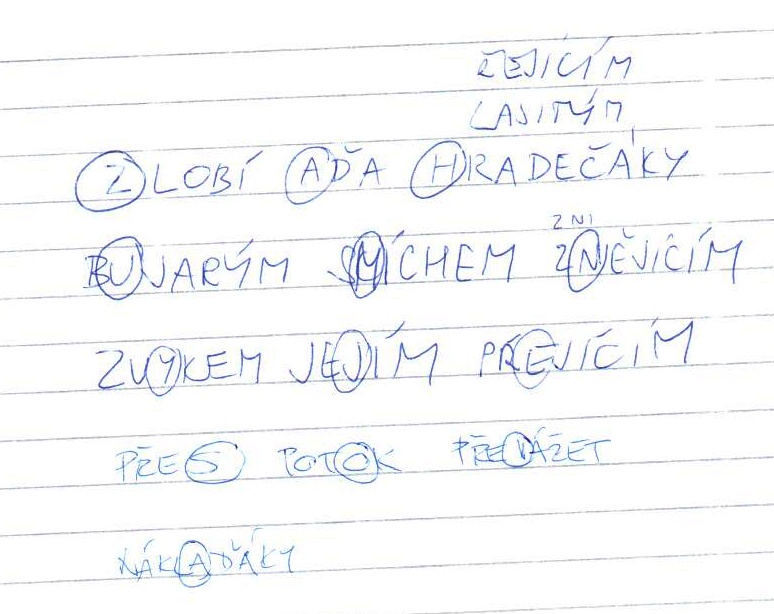 ŘEJÍCÍM
ZLOBÍ AĎA HRADEČÁKY
BUJARÝM SMÍCHEM ZNI ZNĚJÍCÍM
ZVYKEM JEJÍM PŘEJÍCÍM
PŘES POTOK PŘEVÁŽET
NÁKLAĎÁKY